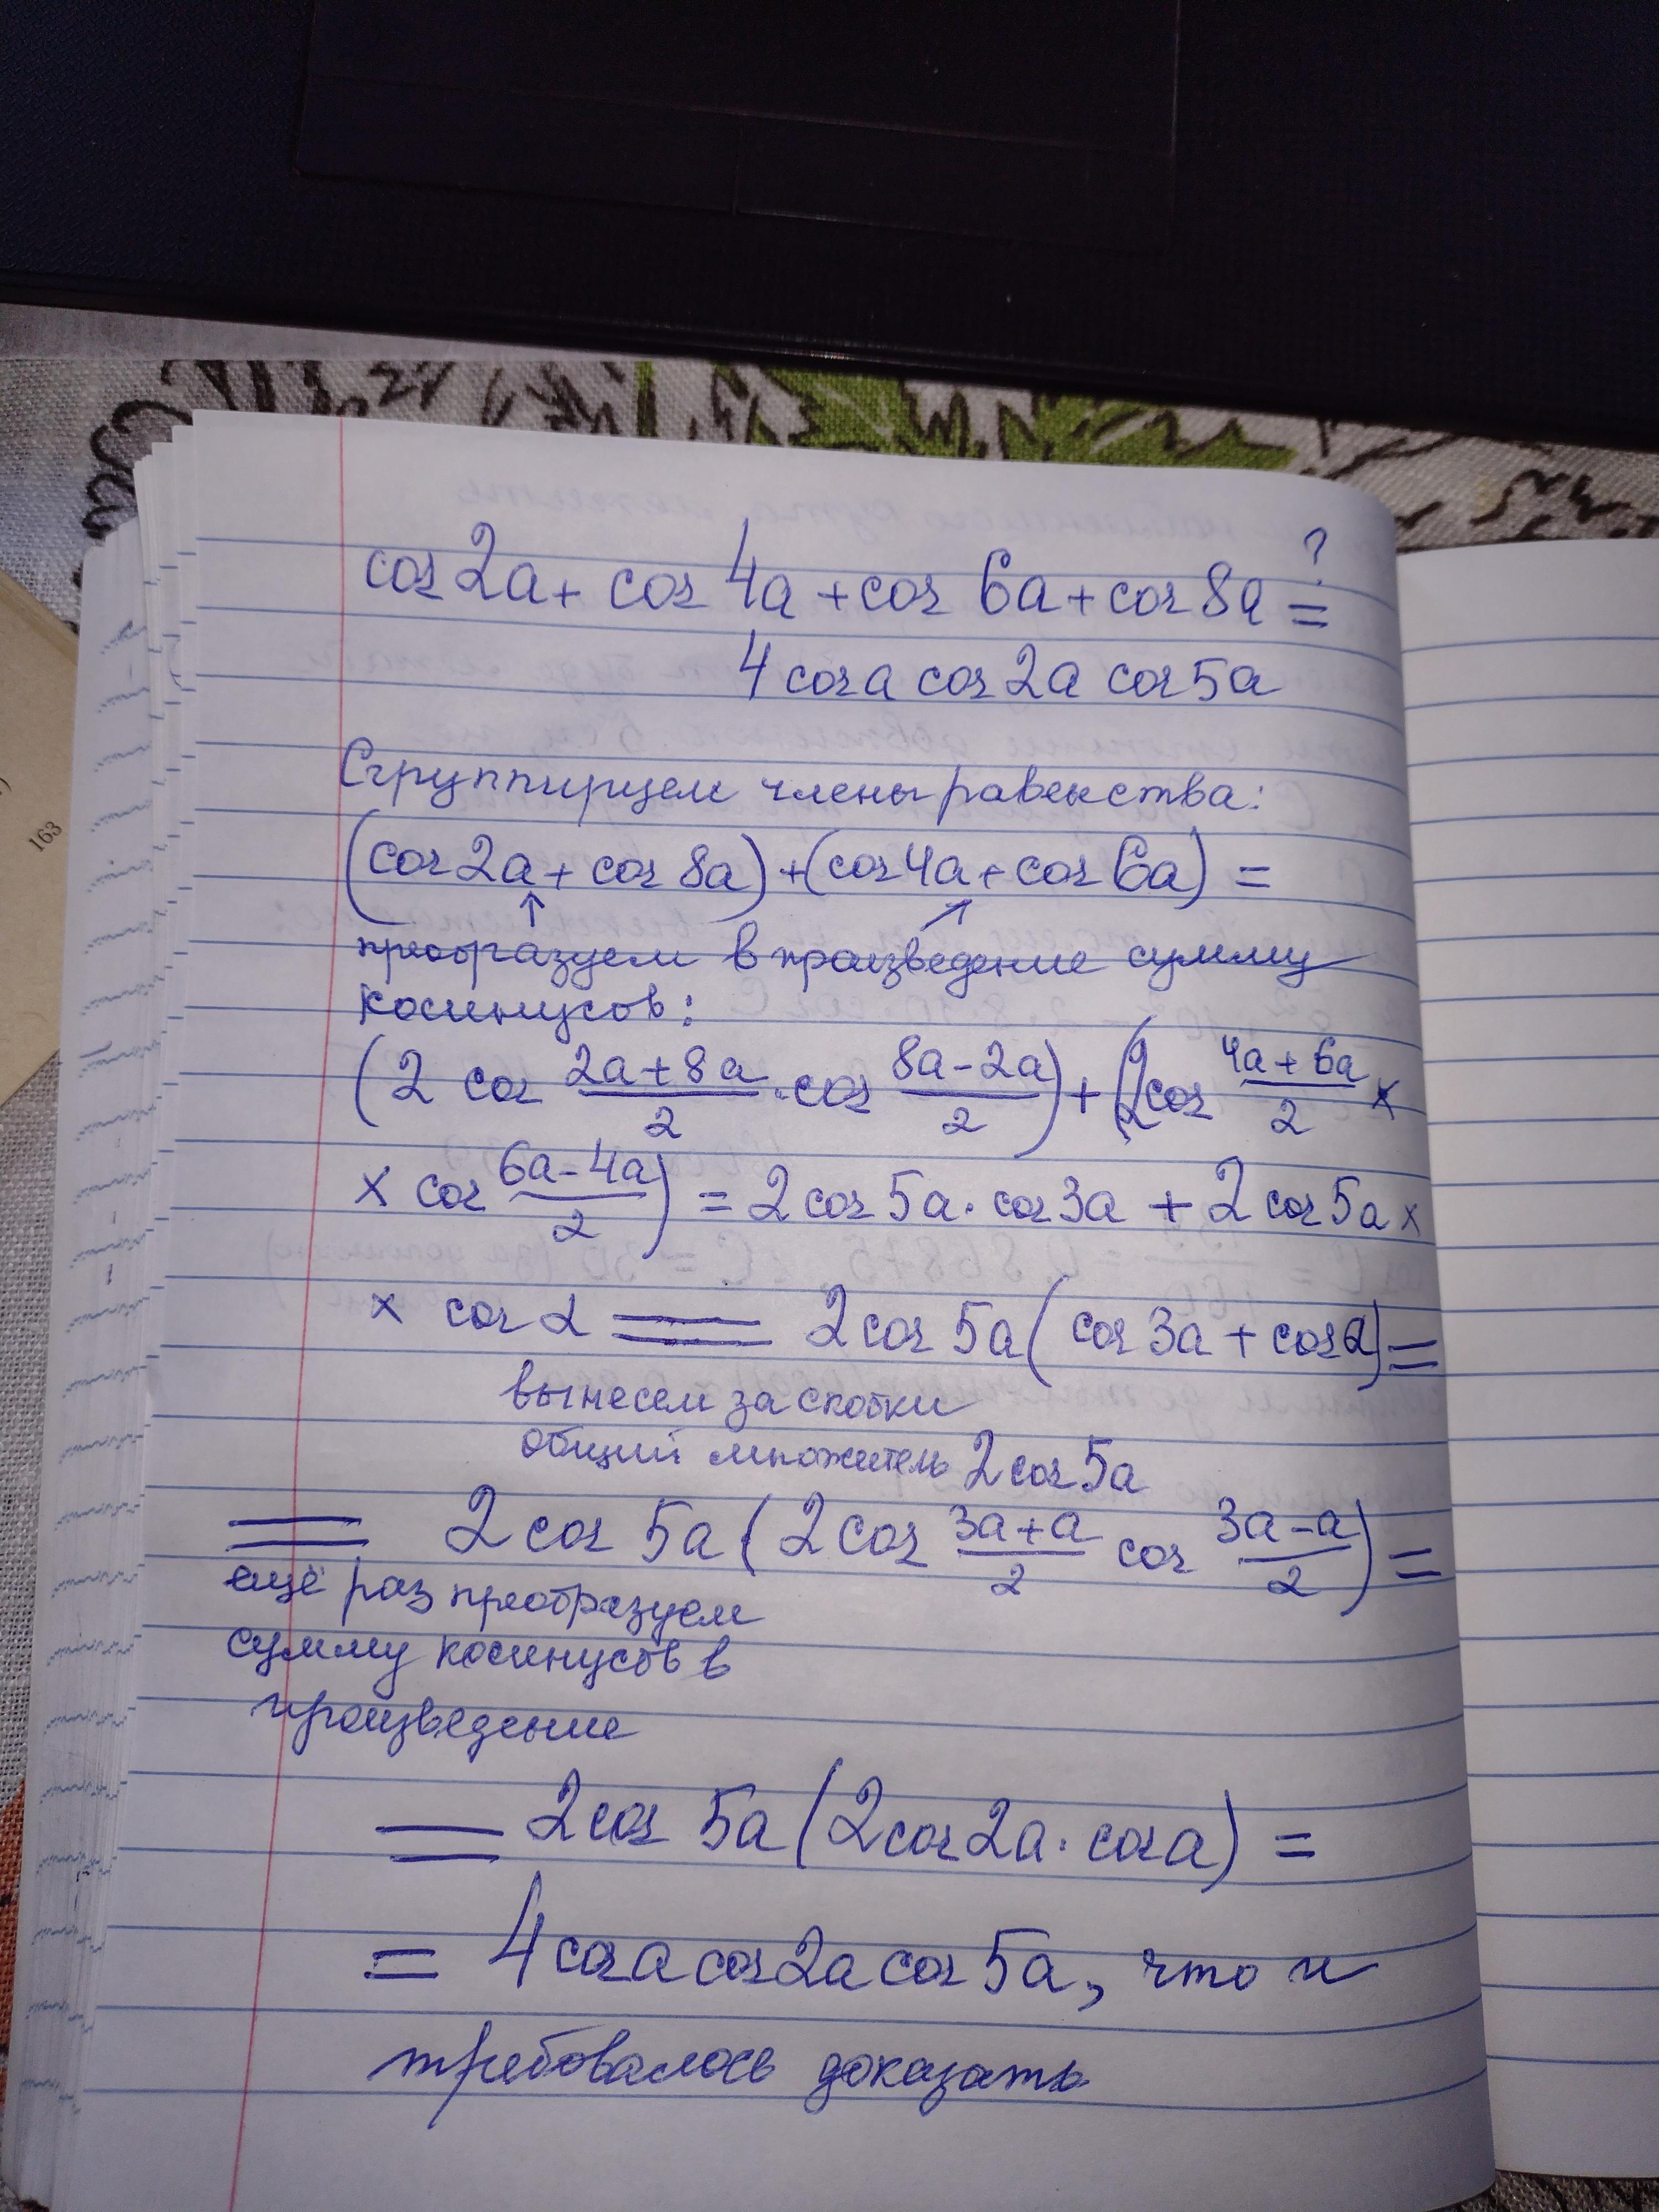 cos 2a + cos 4a + cos 6a + cos 8a ?=
4 cos a cos 2a cos 5a
Сгруппируем члены равенства:
(cos 2a + cos 8a) + (cos 4a + cos 6a) =
↑ ↗
преобразуем в произведение сумму
косинусов:
(2 cos (2a + 8a)/2 · cos (8a - 2a)/2) + (2 cos (4a + 6a)/2 ×
× cos (6a - 4a)/2) = 2 cos 5a · cos 3a + 2 cos 5a ×
× cos α = 2 cos 5a (cos 3a + cos α) =
вынесем за скобки
общий множитель 2 cos 5a
= 2 cos 5a (2 cos (3a + a)/2 cos (3a - a)/2) =
ещё раз преобразуем
сумму косинусов в
произведение
= 2 cos 5a (2 cos 2a · cos a) =
= 4 cos a cos 2a cos 5a, что и
требовалось доказать.
163